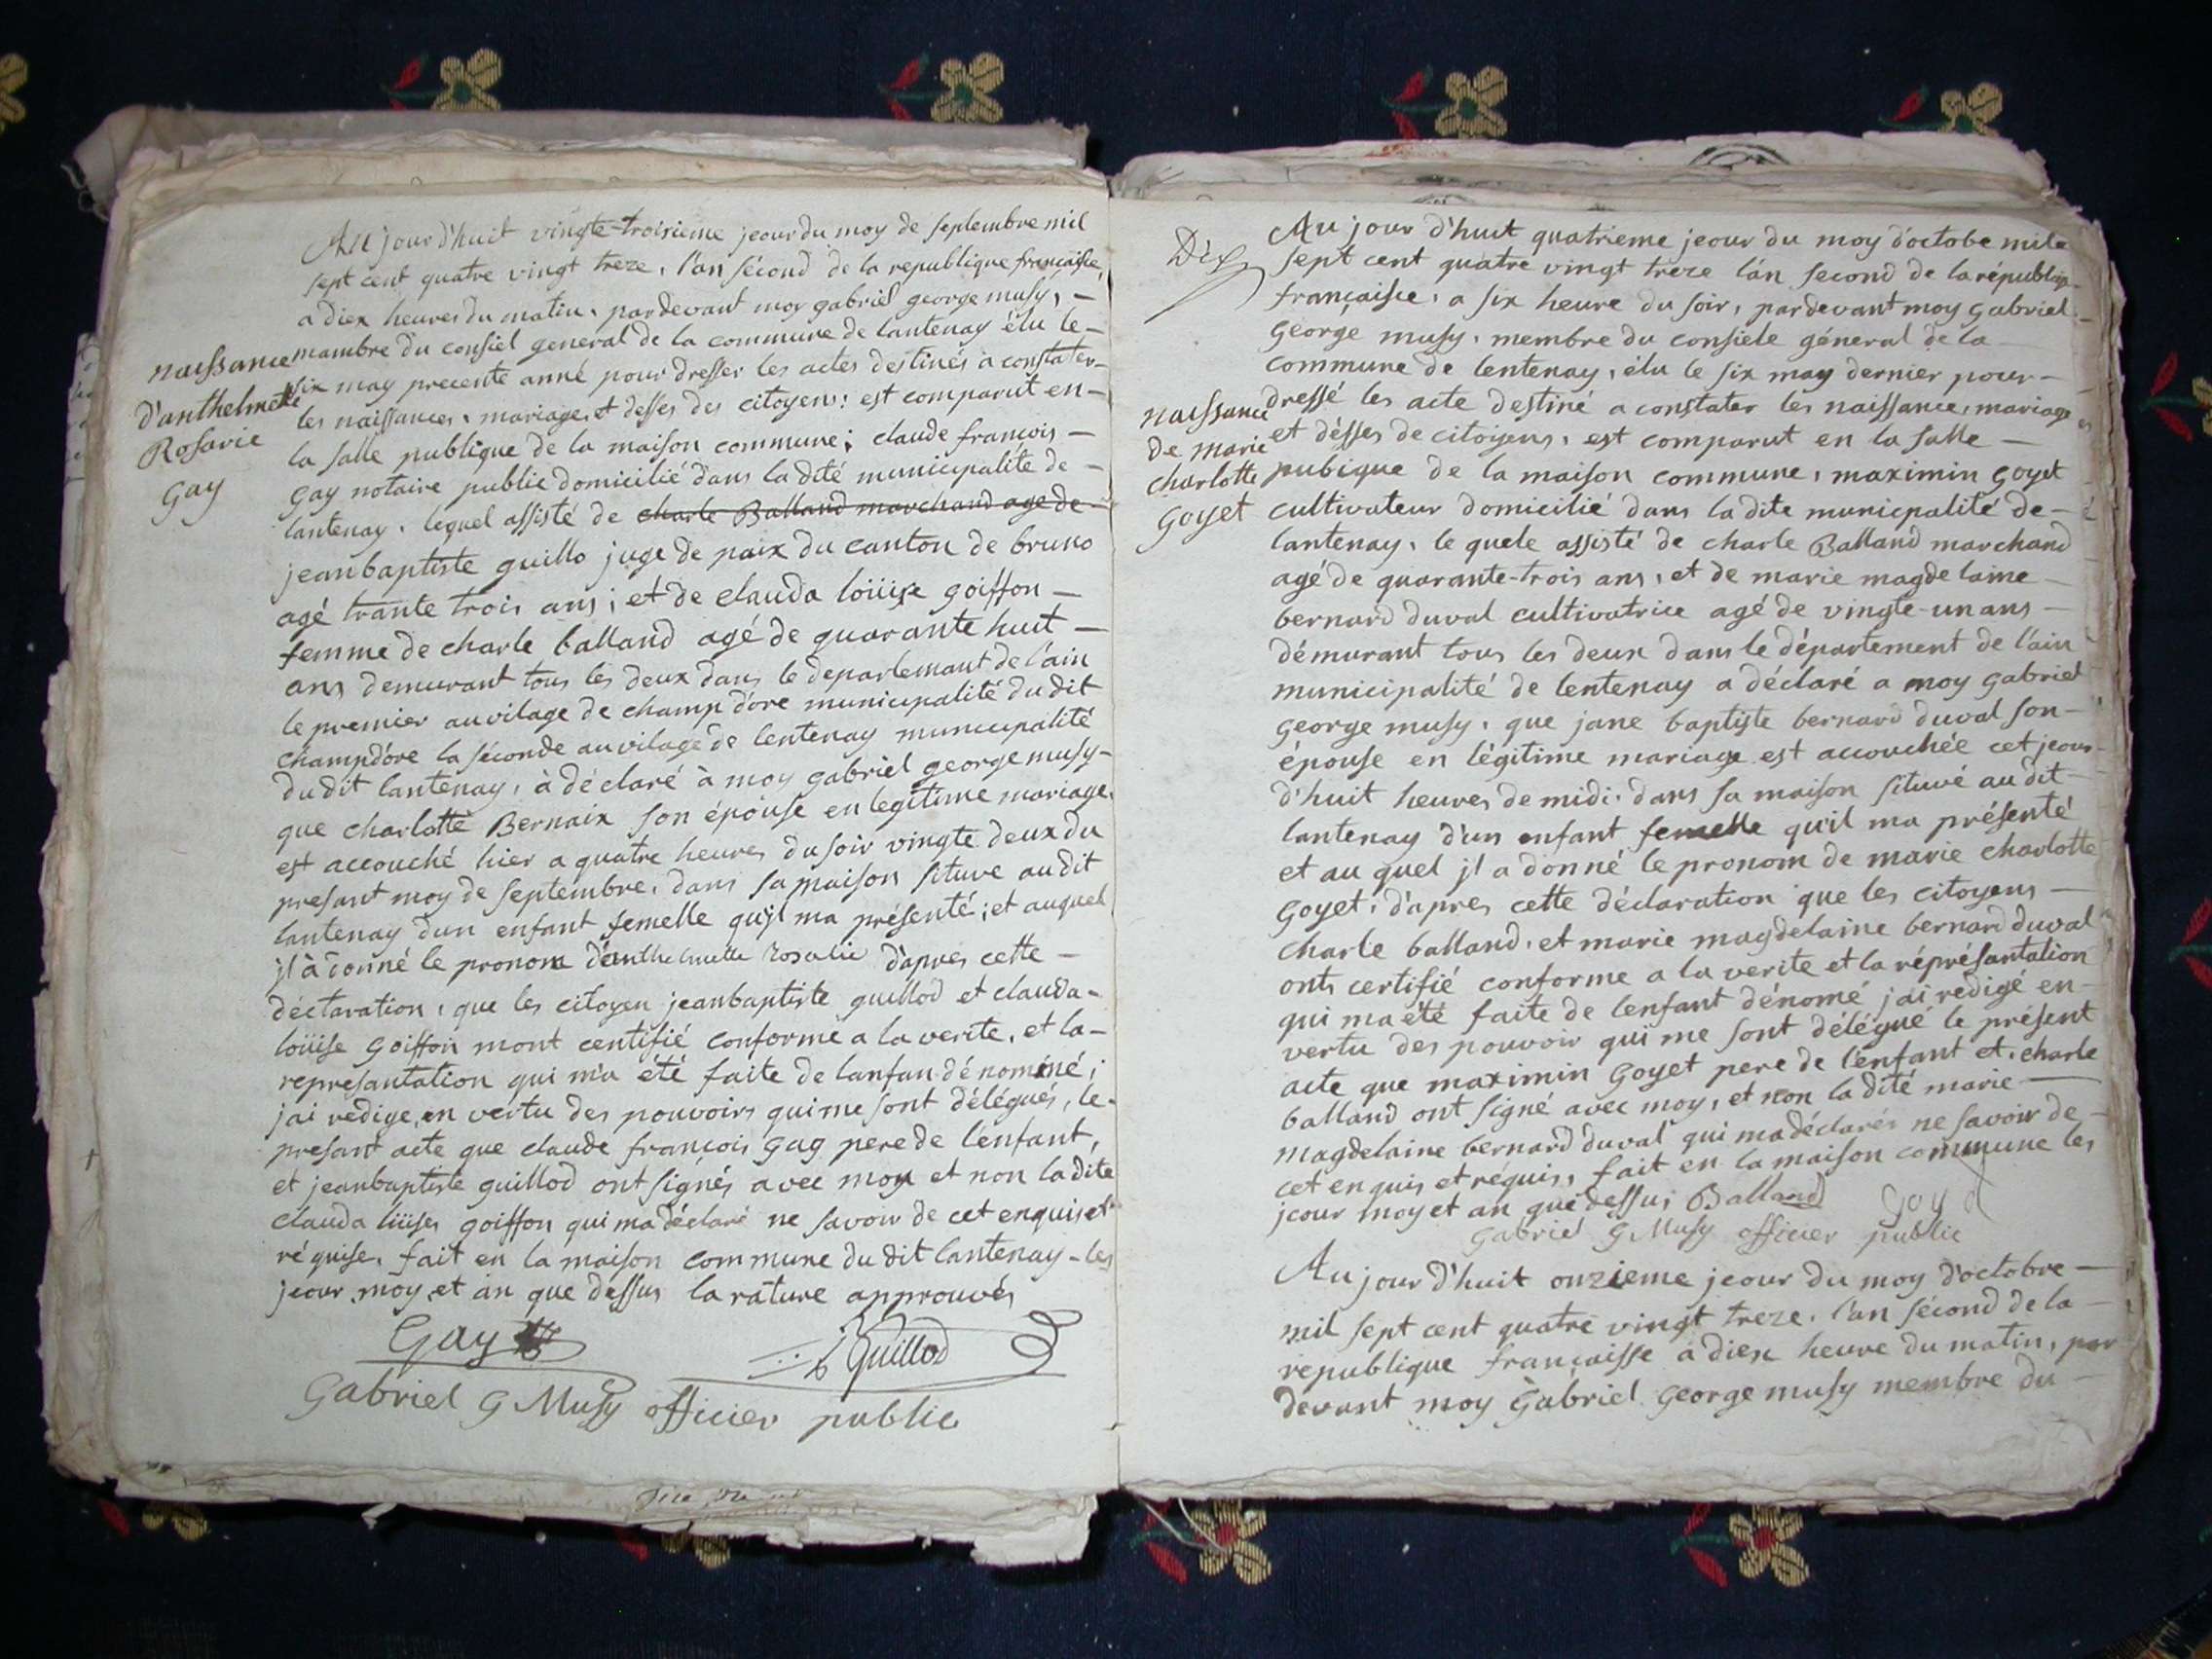 Au jour d'huit vingte-troisieme jeour du moy de septembre mil
sept cent quatre vingt treze, l'an sécond de la republique françaisse,
a diex heures du matin, pardevant moy gabriel george musy, —
mambre du consiel general de la commune de lantenay élu le —
six may precente anné pour dresser les actes destinés a constater —
les naissances, mariage, et desses des citoyens: est comparut en —
la salle publique de la maison commune; claude francois —
gay notaire public domicilié dans la dité municipalité de —
lantenay, lequel assisté de charle Balland marchand age de
jeanbaptiste guillo juge de paix du canton de breno
agé trante trois ans; et de clauda loüise goiffon —
femme de charle balland agé de quarante huit —
ans demeurant tous les deux dans le departemant de l'ain
le premier au vilage de champ dore municipalité du dit
champdore la séconde au vilage de lentenay municipalité
du dit lantenay, à déclaré à moy gabriel george musy —
que charlotte Bernaix son épouse en legitime mariage
est accouché hier a quatre heures du soir vingte deux du
presant moy de septembre, dans sa maison situve au dit
lantenay dun enfant femelle qu'jl ma présenté; et auquel
jl à donné le pronom d'anthelmette Rosalie d'apres cette —
déctaration, que les citoyen jeanbaptiste guillod et clauda-
loüise goiffon mont centifié conforme a la verite, et la —
represantation qui m'a été faite de lanfan dénominé;
jai redige, en vertu des pouvoirs qui me sont délégués, le —
presant acte que claude francois gay pere de l'enfant,
et jeanbaptiste guillod ont signés avec moy et non la dite
clauda liüses goiffon qui ma déclaré ne savoir de cet enquis et
réquise, fait en la maison commune du dit lantenay - les
jeour, moy, et an que dessus la rature approuvés
Gay
Guillod
Gabriel G Musy officier public
naissance
d'anthelmette
Rosarie
gay
Au jour d'huit quatrieme jeour du moy d'octobe mile
sept cent quatre vingt treze l'án second de la républiq
françaisse, a six heure du soir, pardevant moy gabriel —
george musy, membre du consiele géneral de la —
commune de lentenay, élu le six may dernier pour —
dressé les acte destiné a constater les naissance, mariage
et désses de citoiyens, est comparut en la salle —
pubique de la maison commune, maximin goyet
cultivateur domicilié dans la dite municpalité de —
lantenay, le quele assisté de charle Balland marchand
agé de quarante-trois ans, et de marie magdelaine —
bernard duval cultivatrice agé de vingte-un ans —
démurant tous les deux dans le département de l'ain
municipalité de lentenay a déclaré a moy gabriel
george musy, que jane baptiste bernard duval son —
épouse en légitime mariage est accouchée cet jeour —
d'huit heures de midi, dans sa maison situvé au dit —
lantenay d'un enfant femelle qu'il ma présenté
et au quel jl a donné le pronom de marie charlotte
goyet, d'apres cette déclaration que les citoyens —
charle balland, et marie magdelaine bernard duval
onts certifié conforme a la verite et la réprésantation
qui ma été faite de lenfant dénomé jai redigé en —
vertu des pouvoir qui me sont délégué le présent
acte que maximin goyet pere de l'enfant et charle
balland ont signé avec moy, et non la dité marie —
magdelaine bernard duval qui ma déclarés ne savoir de —
cet enquis et réquis, fait en la maison commune les
jeour moy et an que dessus Balland Goyet
Gabriel G Musy officier public
Au jour d'huit onzieme jeour du moy d'octobre —
mil sept cent quatre vingt treze, l'an sécond de la —
republique francaisse a diex heure du matin, par
devant moy Gabriel George musy membre du —
Dix
naissance
de marie
charlotte
goyet